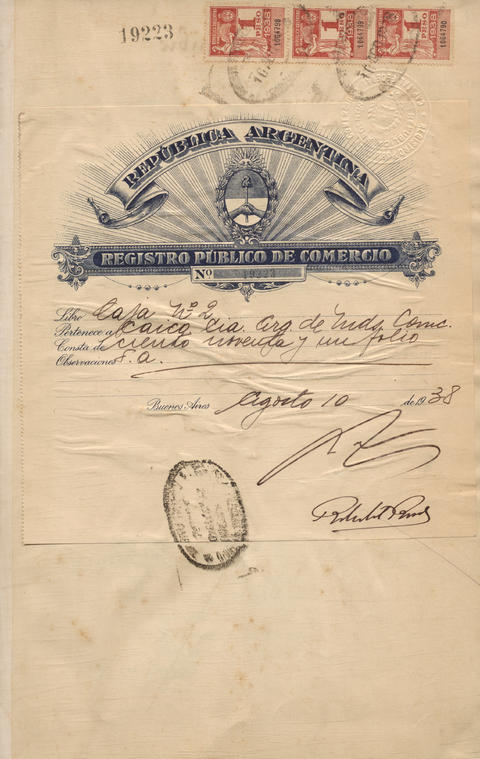 19223
1 PESO 1064798
1 PESO 1064799
1 PESO 1064790
REPÚBLICA ARGENTINA
REGISTRO PÚBLICO DE COMERCIO
Nº 19223
Libro Caja Nº 2
Pertenece a Caica Cia. Arg. de Inds. Comc.
Consta de ciento noventa y un folio
Observaciones S. a.
Buenos Aires Agosto 10 de 1938